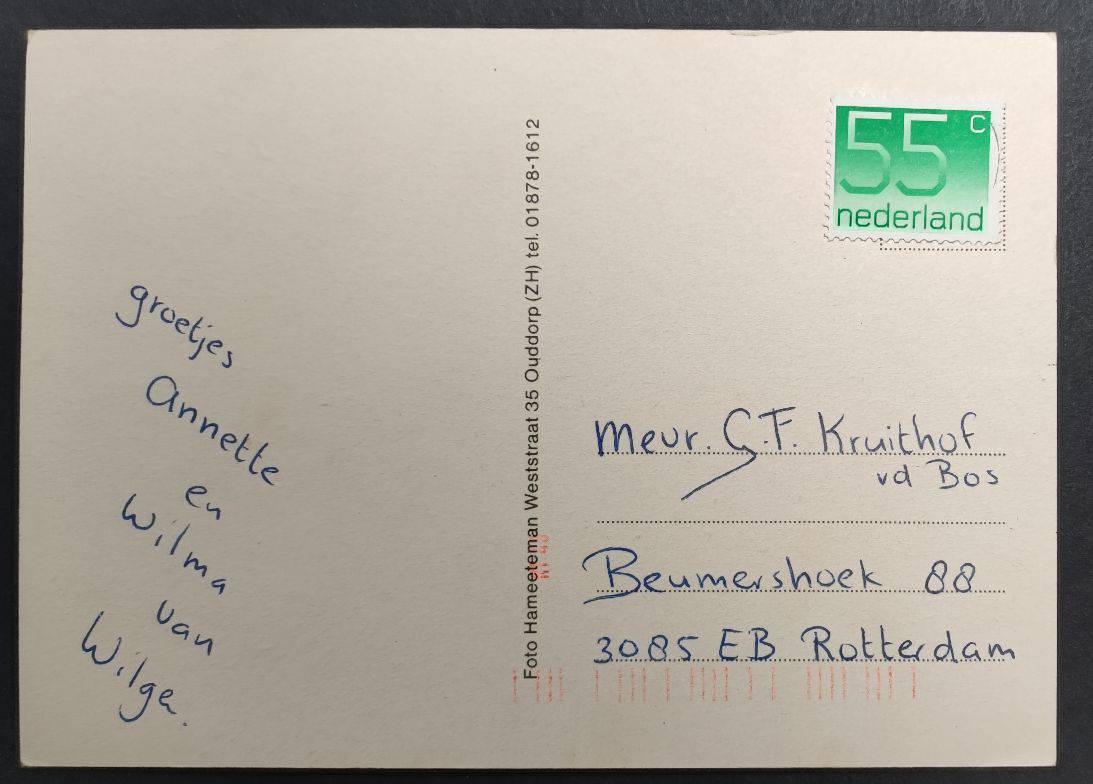 groetjes
Annette
en
Wilma
van
Wilga.
Foto Hameeteman Weststraat 35 Ouddorp (ZH) tel. 01878-1612
55 c
nederland
Mevr. G.F. Kruithof
vd Bos
Beumershoek 88
3085 EB Rotterdam